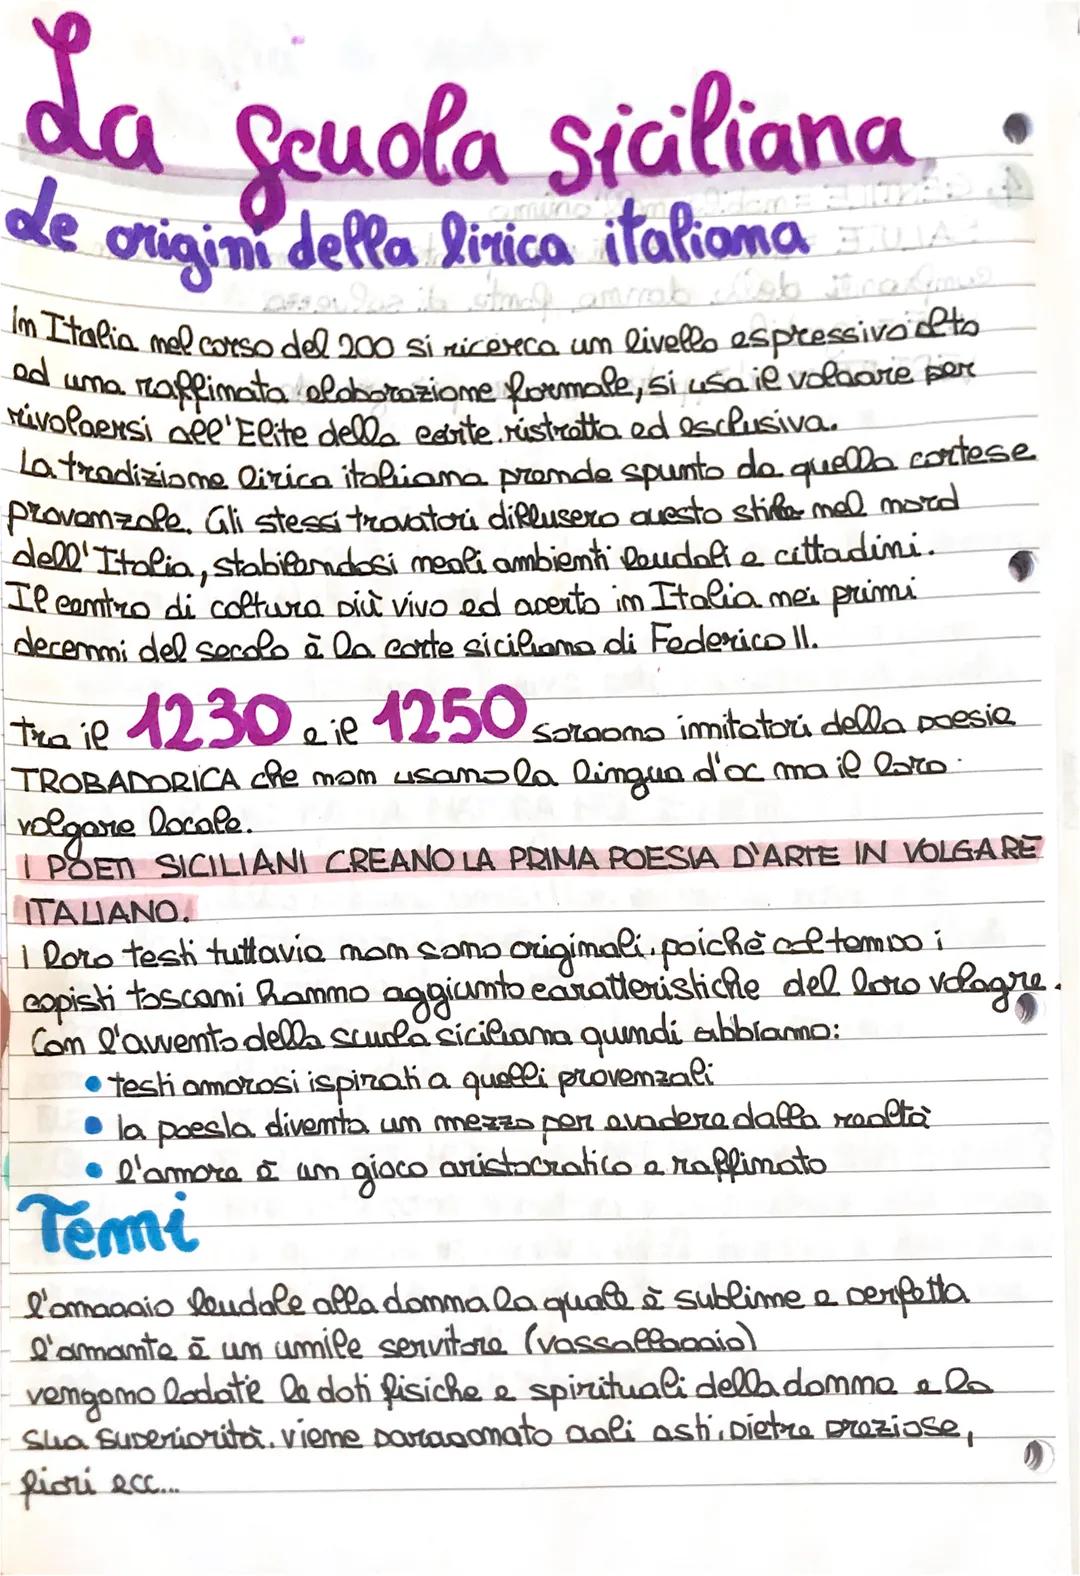 La scuola siciliana
Le origini della lirica italiana
In Italia nel corso del 200 si ricerca un livello espressivo alto
ad una raffinata elaborazione formale, si usa il volgare per
rivolgersi all'Elite della corte ristretta ed esclusiva.
La tradizione lirica italiana prende spunto da quella cortese
provenzale. Gli stessi trovatori diffusero questo stile nel nord
dell'Italia, stabilendosi negli ambienti feudali e cittadini.
Il centro di coltura più vivo ed aperto in Italia nei primi
decenni del secolo è la corte siciliana di Federico II.
tra il 1230 e il 1250 sorgono imitatori della poesia
TROBADORICA che non usano la lingua d'oc ma il loro
volgare locale.
I POETI SICILIANI CREANO LA PRIMA POESIA D'ARTE IN VOLGARE
ITALIANO.
I loro testi tuttavia non sono originali, poichè col tempo i
copisti toscani hanno aggiunto caratteristiche del loro volagre.
Con l'avvento della scuola siciliana quindi abbiamo:
• testi amorosi ispirati a quelli provenzali
• la poesia diventa un mezzo per evadere dalla realtà
• l'amore è un gioco aristocratico e raffinato
Temi
l'omaggio feudale alla donna la quale è sublime e perfetta
l'amante è un umile servitore (vassallaggio)
vengono lodate le doti fisiche e spirituali della donna e la
sua superiorità. viene paragonato agli astri, pietre preziose,
fiori ecc...